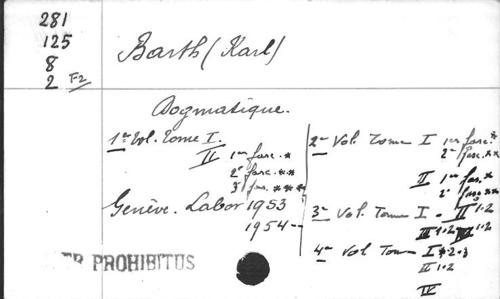 281
125
8
2 F2
Barth (Karl)
Dogmatique.
1er Vol. Tome I.
II 1er fasc. *
2e fasc. **
3e fas. ***
Genève. Labor 1953
1954 --
2e Vol. Tome I 1er fasc. *
2e fasc. **
II 1er fas. *
2e fas **
3e Vol. Tome I - II 1-2
III 1-2
4e Vol Tome I * 2-3
II 1-2
IV
PROHIBITUS